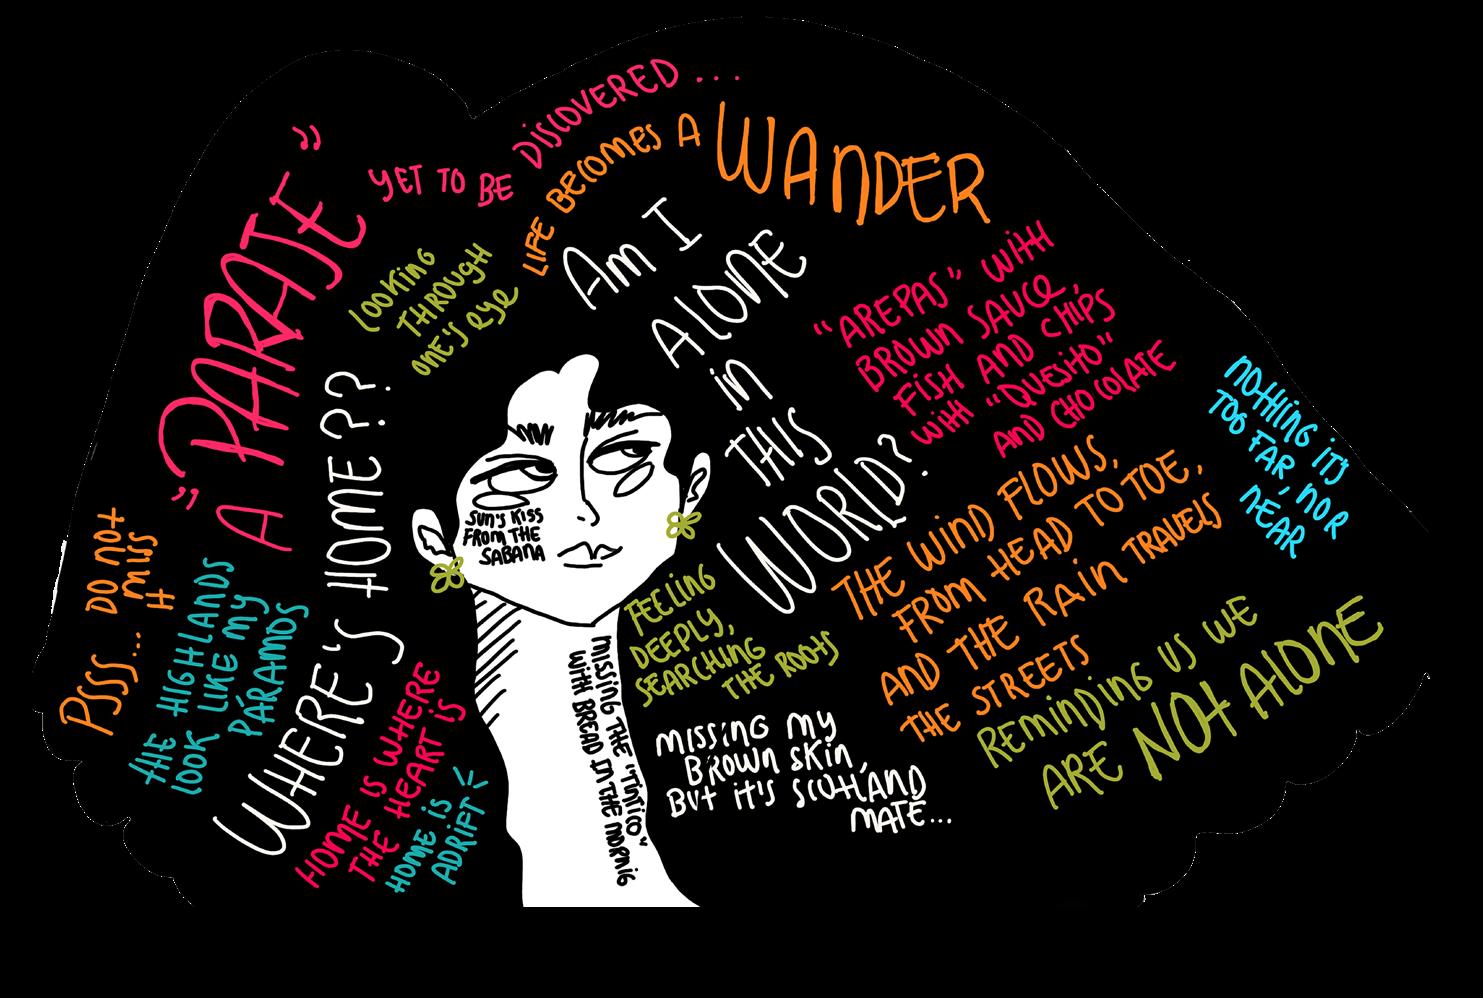 Psss... DO NOT
miss
it
THE HIGHLANDS
LOOK LIKE MY
PÁRAMOS
A "PARAJE"
YET TO BE DISCOVERED...
LOOKING
THROUGH
ONE'S EYE
LIFE BECOMES A WANDER
WHERE'S HOME??
HOME IS WHERE
THE HEART IS
HOME IS
ADRIFT
Am I
ALONE
in
THIS
WORLD?
SUN'S KISS
FROM THE
SABANA
MISSING THE "TINTICO"
WITH BREAD IN THE MORNIG
FEELING
DEEPLY,
SEARCHING
THE ROOTS
MISSING MY
BROWN SKIN,
BUT IT'S SCOTLAND
MATE...
"AREPAS" WITH
BROWN SAUCE,
FISH AND CHIPS
WITH "QUESITO"
AND CHOCOLATE
THE WIND FLOWS,
FROM HEAD TO TOE,
AND THE RAIN TRAVELS
THE STREETS
REMINDING US WE
ARE NOT ALONE
NOTHING IT'S
TOO FAR, NOR
NEAR